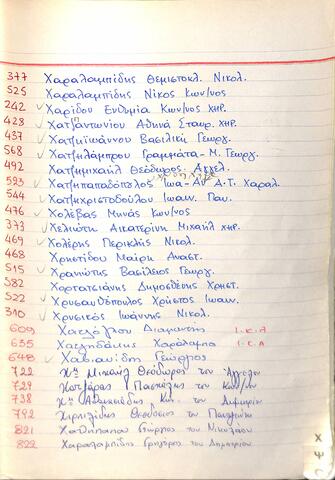 377 Χαραλαμπίδης Θεμιστοκλ. Νικολ.
525 Χαραλαμπίδης Νίκος Κων/νος
242 Χαρίδου Ευθυμία Κων/νος χηρ.
428 Χατζηαντωνίου Αθηνά Σταυρ. χηρ.
437 Χατζηϊωάννου Βασιλική Γεωργ.
568 Χατζηλάμπρου Γραμμάτα-Μ. Γεωργ.
492 Χατζημιχαήλ Θεόδωρος Αγγελ.
593 Χατζηπαπαδόπολος Ιωα-Αν Α.Τ. Χαραλ.
544 Χατζηχριστοδούλου Ιωαν. Παυ.
476 Χολέβας Μηνάς Κων/νος
373 Χελιώτη Αικατερίνη Μιχαήλ χηρ.
469 Χολέρης Περικλής Νικολ.
468 Χρηστίδου Μαίρη Αναστ.
515 Χρανιώτης Βασίλειος Γεωργ.
582 Χορτατσιάνης Δημοσθένης Χρηστ.
522 Χρυσανθόπουλος Χρίστος Ιωαν.
310 Χρυσικός Ιωάννης Νικολ.
609 Χατζόγλου Διαμαντής Ι.Κ.Α
635 Χατζηδάκης Χαράλαμπο Ι.Κ.Α
648 Χαβιανίδη Γεώργιος
722 Χ" Μιχαήλ Θεόδωρος του Αγγέλου
729 Χατζάρας Πασχάλης του Κων/νου
738 Χ" Κων. του Δημητρίου
792 Χιρπιλίδης Θεοδόσιος του Παντελή
821 Γιώργος του Νικολάου
822 Χαραλαμπίδης Γρηγόρης του Δημητρίου
Χ
Ψ